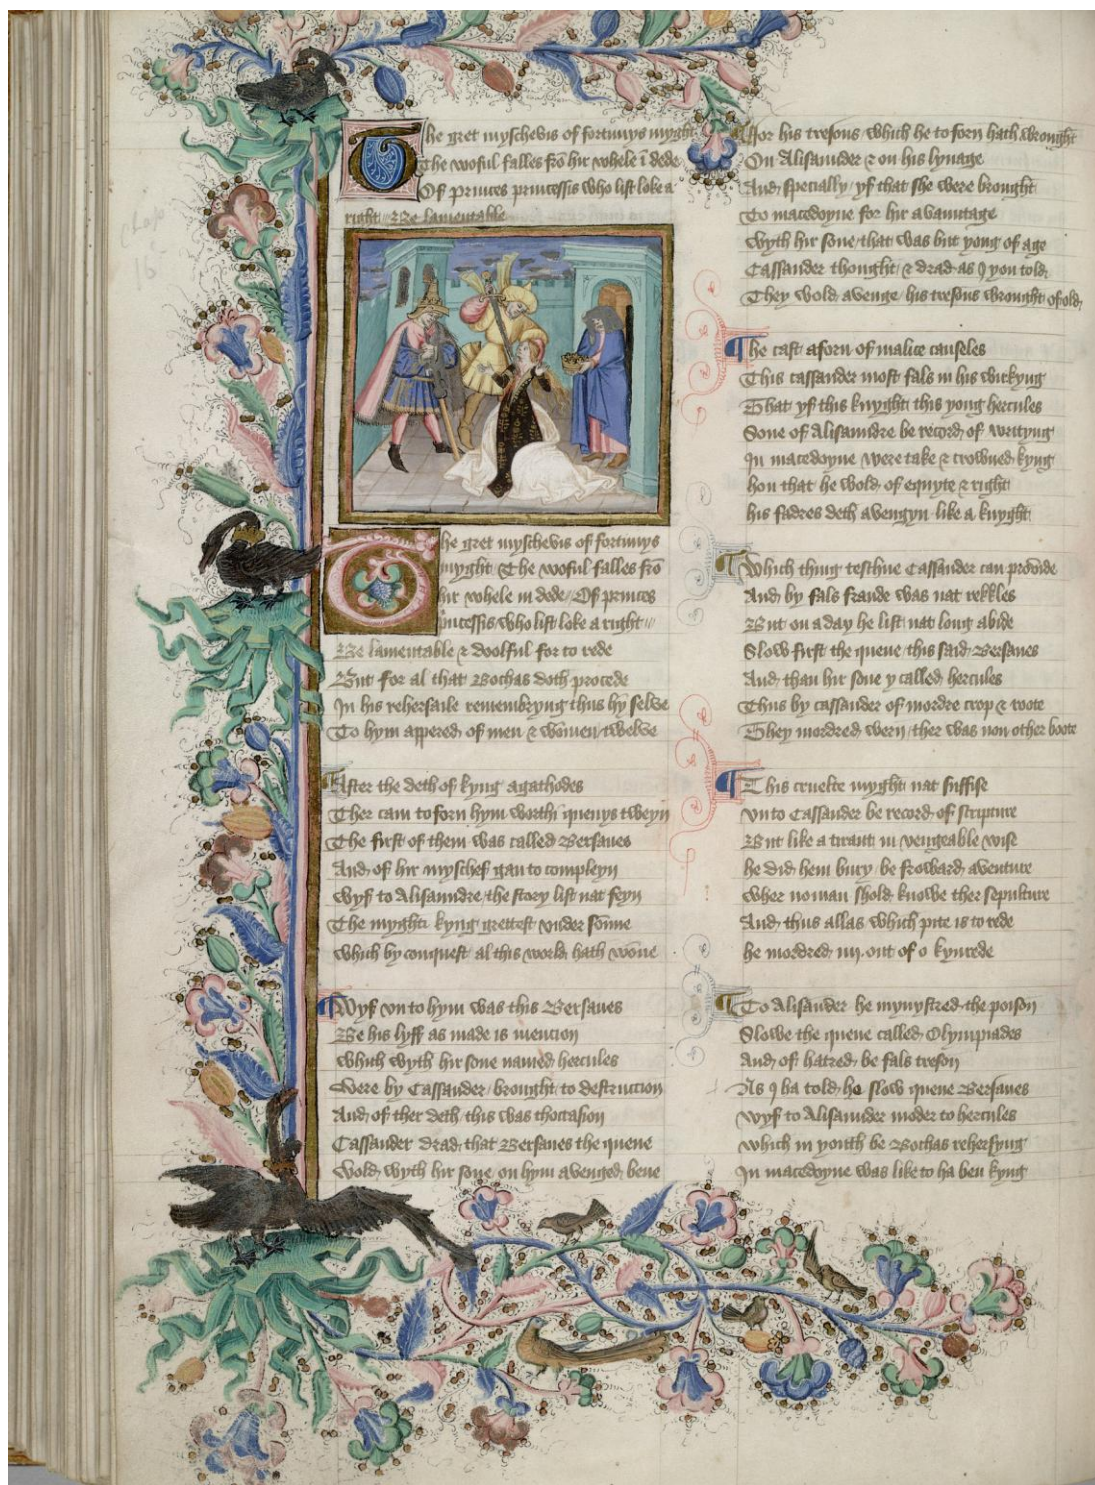 The gret myschevis of fortunys myght
The woful falles frō hir whele ī dede
Of princes princessis who list loke a
right Be lamentable
The gret myschevis of fortunys
myght The woful falles frō
hir whele in dede Of princes
princessis who list loke a right
Be lamentable & doolful for to rede
But for al that Bochas doth procede
In his rehersaile remembryng thus hȳ selve
To hym appered of men & wōmen twelve
After the deth of kyng agathodes
Ther cam to forn hym worthi quenys tweyn
The first of them was called Bersanes
And of hir myschef gan to compleyn
Wyf to Alisaundre the story list nat feyn
The myghti kyng grettest vnder sōnne
which by conquest al this world hath wōne
Wyf vn to hym was this Bersanes
Be his lyff as made is mencion
which wyth hir sone named hercules
Were by Cassander brought to destruccion
And of ther deth this was thoccasion
Cassander drad that Bersanes the quene
Wold wyth hir sone on hym avenged bene
ffor his tresons which he to forn hath wrought
On Alisaunder & on his lynage
And specially yf that she were brought
To macedoyne for hir avauntage
wyth hir sone that was but yong of age
Cassander thought & drad as I you told
They wold avenge his tresons wrought of old
The cast aforn of malice causeles
This cassander most fals in his wirkyng
That yf this knyght this yong hercules
Sone of Alisaundre be record of writyng
In macedoyne were take & crowned kyng
hou that he wold of equyte & right
his fadres deth avengyn like a knyght
Which thing teschue Cassander can provide
And by fals fraude was nat rekkles
But on a day he list nat long abide
Slow first the quene this said Bersanes
And than hir sone y called hercules
Thus by cassander of mordre crop & roote
They mordred wern ther was non other boote
This cruelte myght nat suffise
vnto Cassander be record of scripture
But like a tiraunt in vengeable wise
he did hem bury be froward aventure
wher no man shold knowe ther sepulture
And thus allas which pite is to rede
he mordred iiij. out of o kynrede
To Alisander he mynystred the poison
Slowe the quene called Olympiades
And of hatred be fals treson
As I ha told he slow quene Bersanes
wyf to Alisaunder moder to hercules
which in youth be Bochas rehersyng
In macedoyne was like to ha ben kyng